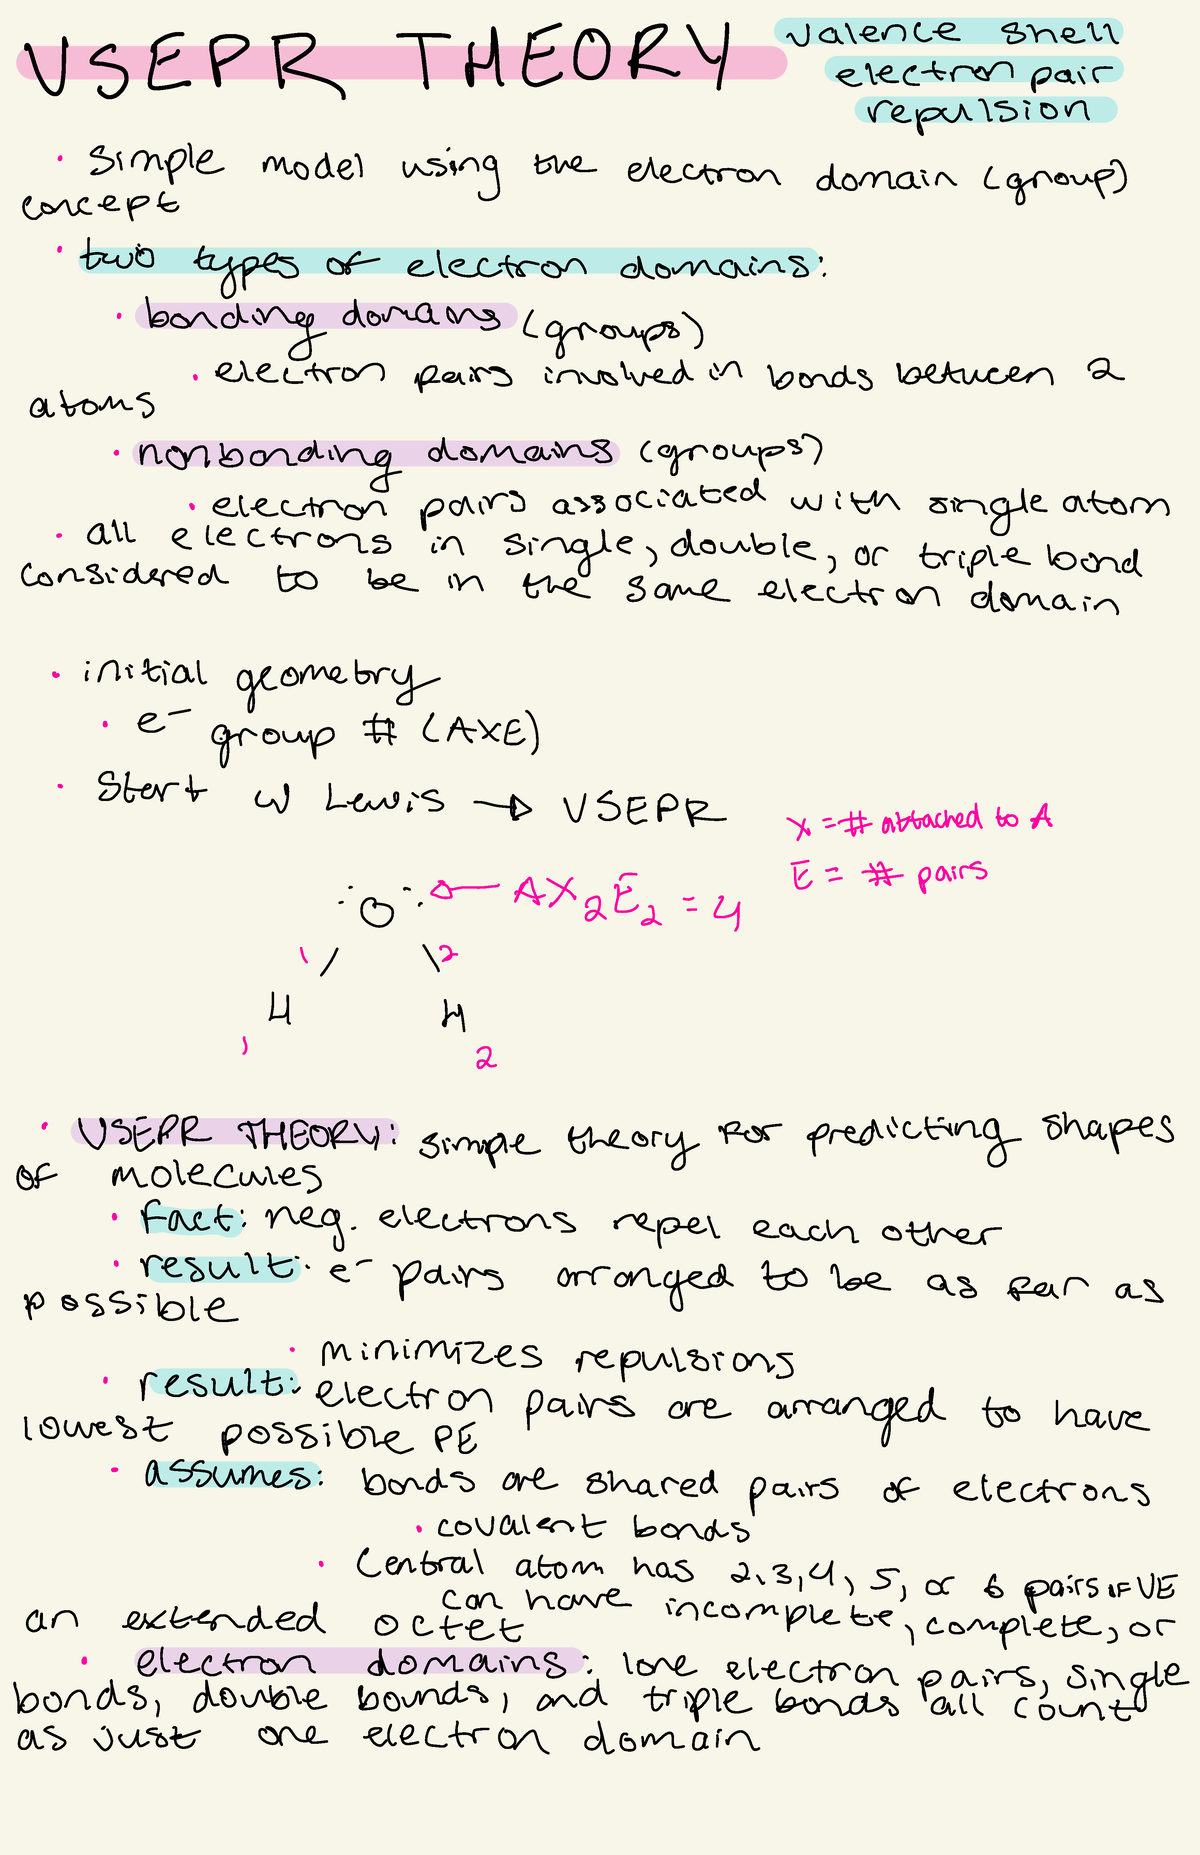 VSEPR THEORY
valence shell
electron pair
repulsion
• simple model using the electron domain (group)
concept
• two types of electron domains:
• bonding domains (groups)
• electron pairs involved in bonds between 2
atoms
• nonbonding domains (groups)
• electron pairs associated with single atom
• all electrons in single, double, or triple bond
considered to be in the same electron domain
• initial geometry
• e⁻ group # (AXE)
• Start w Lewis → VSEPR
X = # attached to A
E = # pairs
O ← AX₂E₂ = 4
1 2
H H
1 2
• VSEPR THEORY: simple theory for predicting shapes
of molecules
• fact: neg. electrons repel each other
• result: e⁻ pairs arranged to be as far as
possible
• minimizes repulsions
• result: electron pairs are arranged to have
lowest possible PE
• assumes: bonds are shared pairs of electrons
• covalent bonds
• Central atom has 2, 3, 4, 5, or 6 pairs of VE
can have incomplete, complete, or
an extended octet
• electron domains: lone electron pairs, single
bonds, double bounds, and triple bonds all count
as just one electron domain